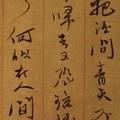 把酒問青天不
歸去又恐瓊
何似在人間